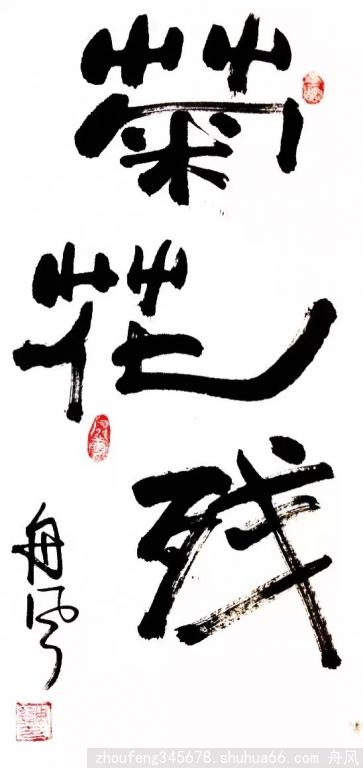 菊
花
残
舟风
zhoufeng345678.shuhua66.com 舟风